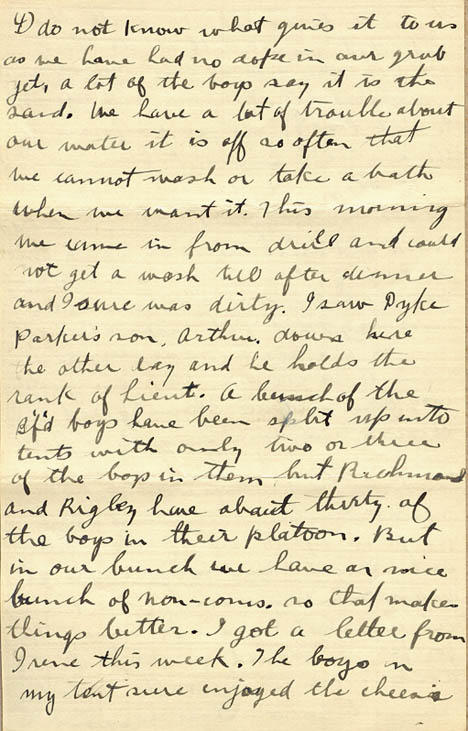 I do not know what gives it to us
as we have had no dope in our grub
yet, a lot of the boys say it is the
sand. We have a lot of trouble about
our water it is off so often that
we cannot wash or take a bath
when we want it. This morning
we came in from drill and could
not get a wash till after dinner
and I sure was dirty. I saw Dyke
Parker's son, Arthur. down here
the other day and he holds the
rank of Lieut. A bunch of the
boys have been split up into
tents with only two or three
of the boys in them but Richmond
and Rigley have about thirty. of
the boys in their platoon. But
in our bunch we have a nice
bunch of non-coms. so that makes
things better. I got a letter from
Irene this week. The boys in
my tent sure enjoyed the cheese